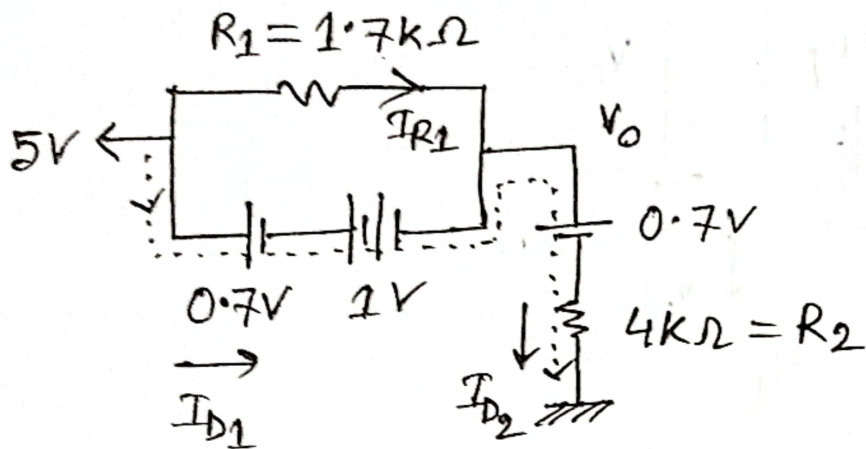 R1 = 1.7kΩ
5V
IR1
V0
0.7V
0.7V
1V
4kΩ = R2
ID1
ID2